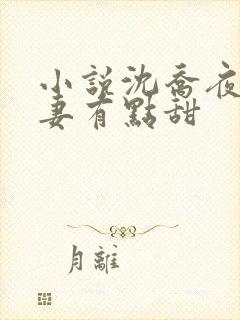 小說沈喬夜
妻有點甜
月離